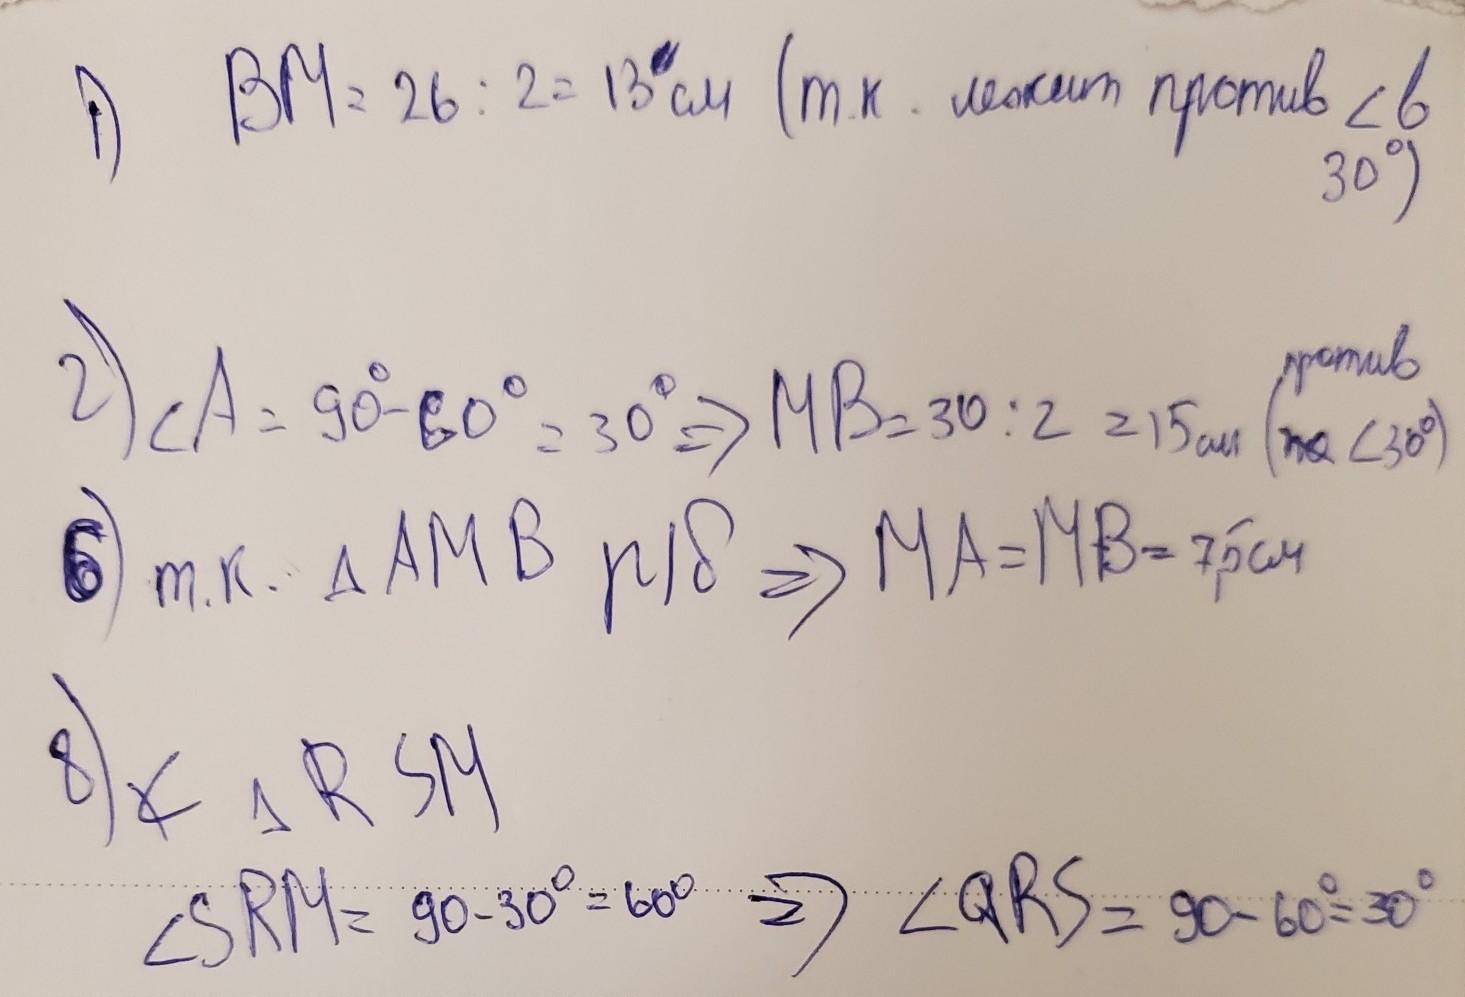 1) BM = 26 : 2 = 13 см (т.к. лежит против <в
30°)
2) <A = 90° - 60° = 30° => MB = 30 : 2 = 15 см (против <30°)
6) т.к. △ AMB р/б => MA = MB = 7,5 см
8) △ RSM
<SRM = 90 - 30° = 60° => <QRS = 90 - 60° = 30°